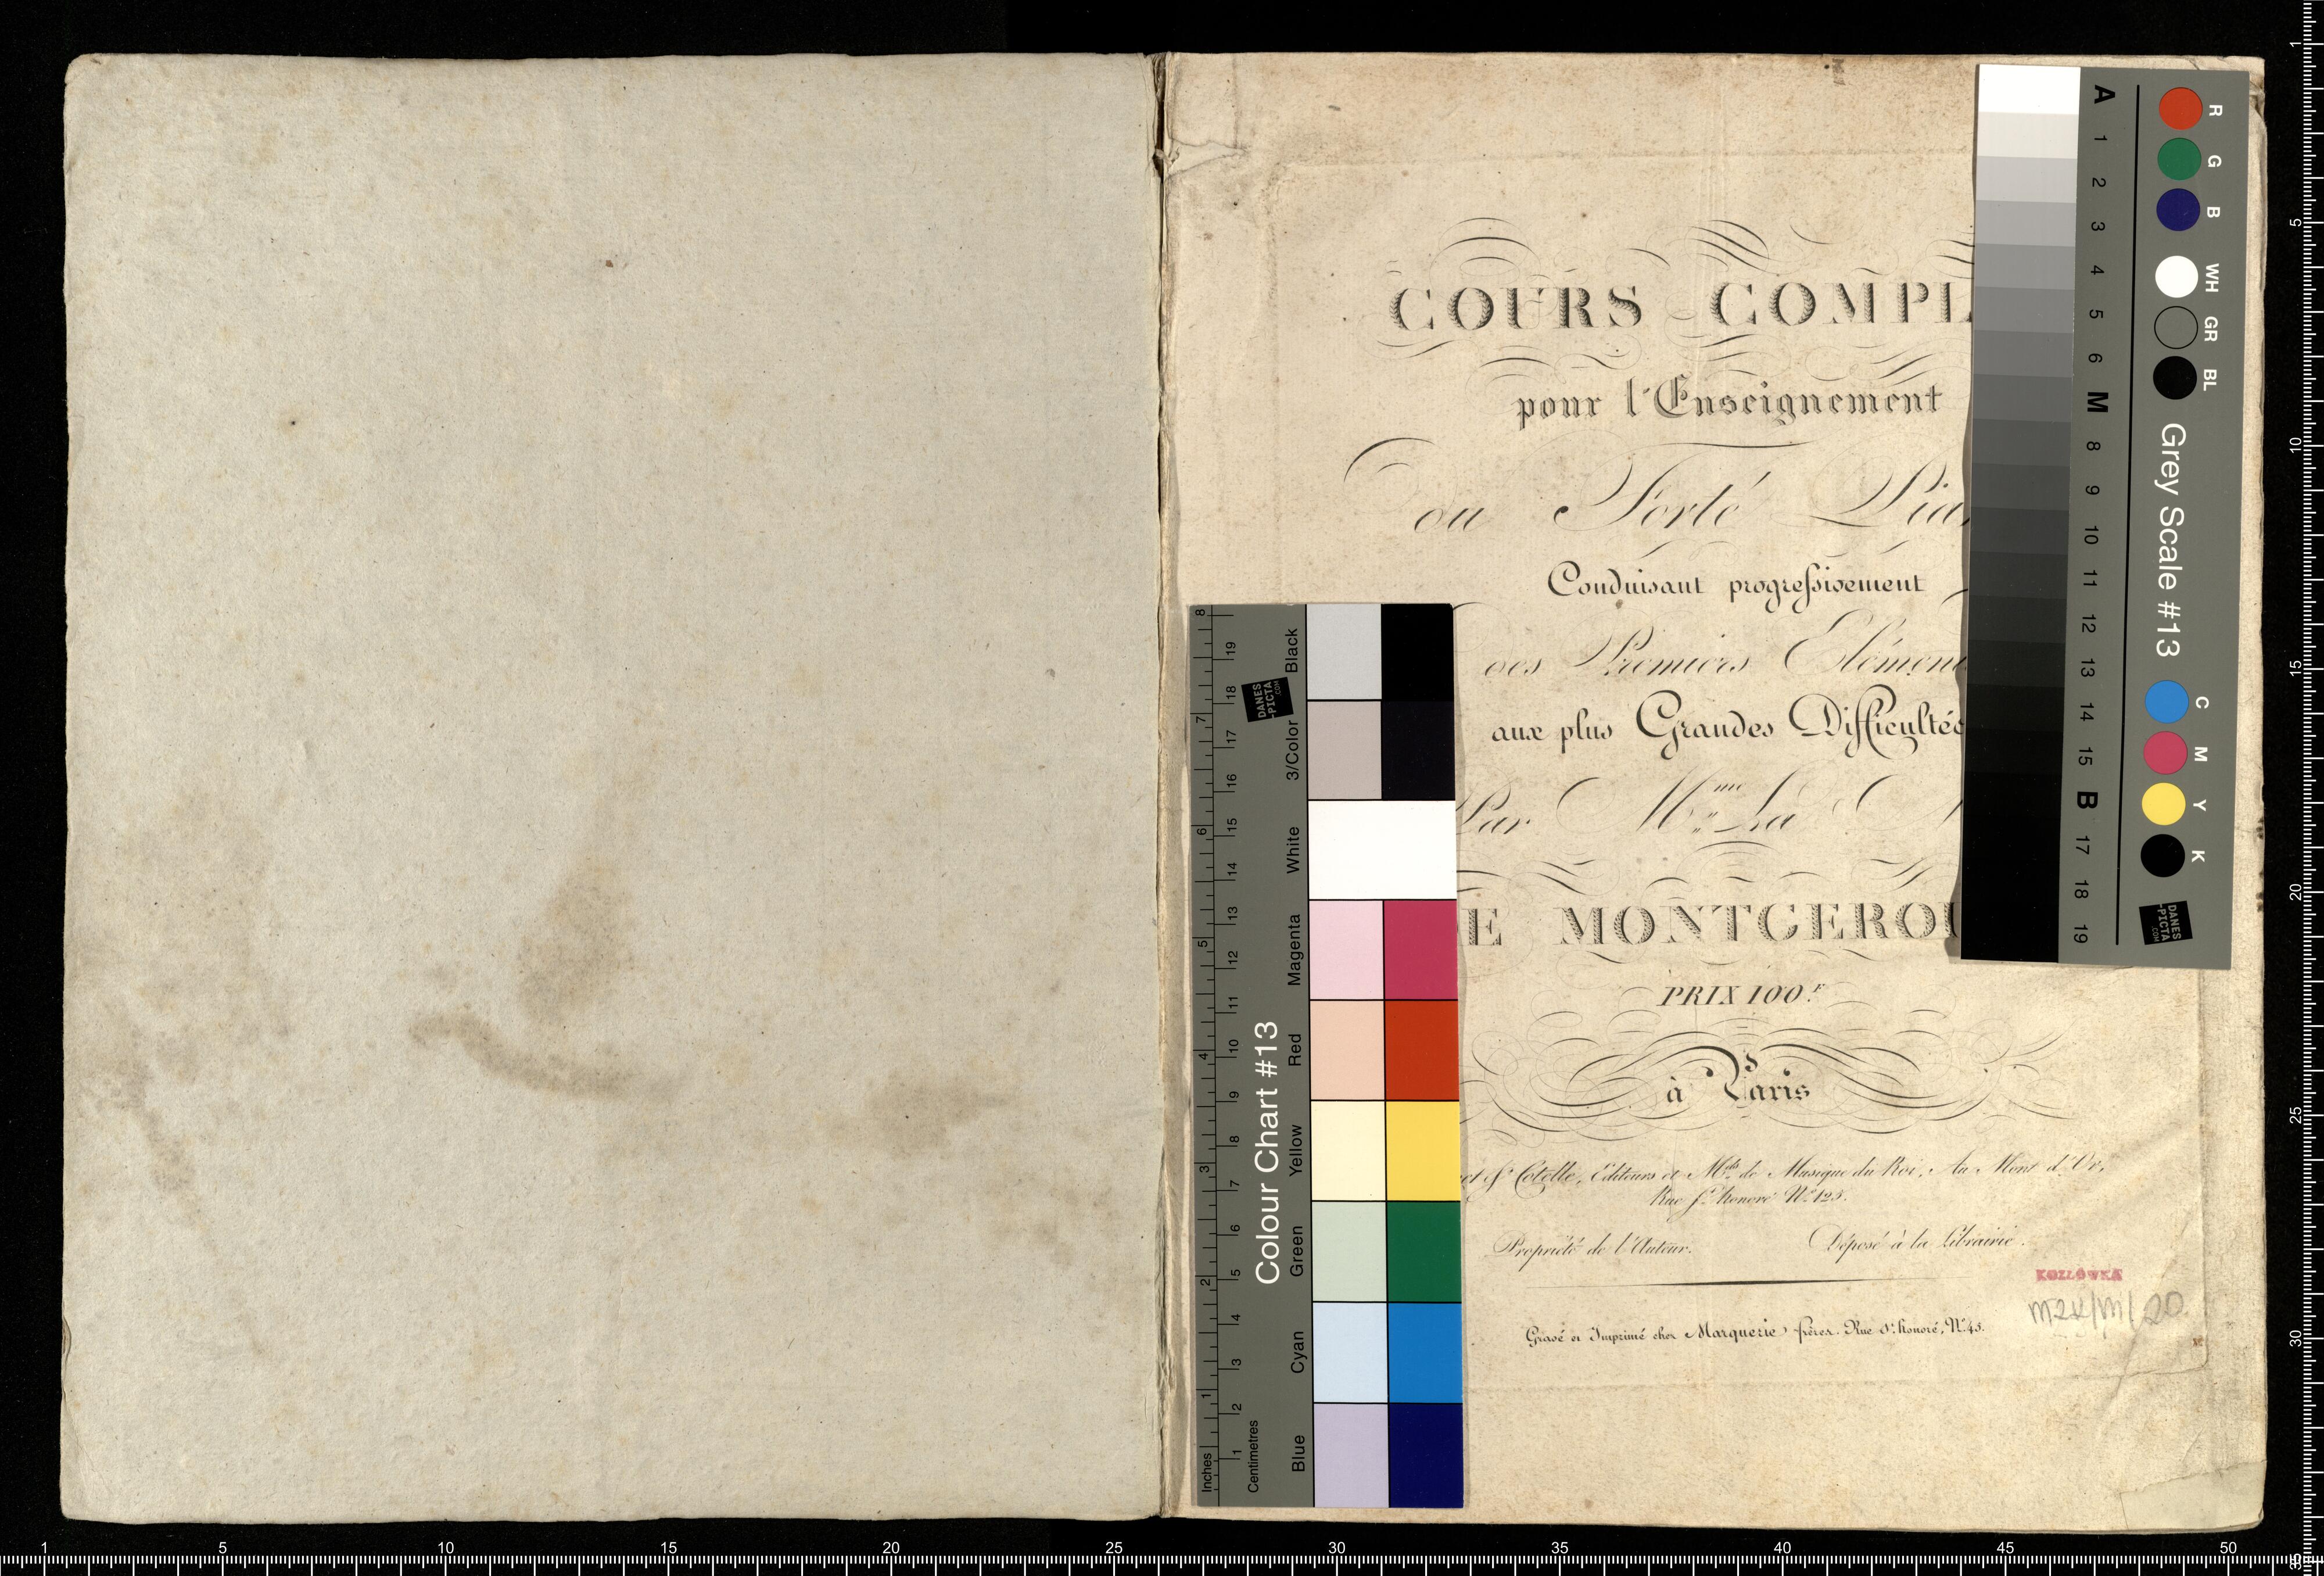 COURS COMPL
pour l'Enseignement
du Forté Pia
Conduisant progressivement
des Premiers Elémen
aux plus Grandes Difficultés
Par Mme La
E MONTGEROU
PRIX 100.F
à Paris
et Cotelle, Editeurs et Mds de Musique du Roi, Au Mont d'Or,
Rue St. honoré No. 123.
Propriété de l'Auteur. Déposé à la Librairie.
KOZŁÓWKA
MZK/M/20
Gravé et Imprimé chez Marquerie frères. Rue St. honoré, No. 43.
Colour Chart #13
Black
3/Color
White
Magenta
Red
Yellow
Green
Cyan
Blue
Inches 1 2 3 4 5 6 7 8
Centimetres 1 2 3 4 5 6 7 8 9 10 11 12 13 14 15 16 17 18 19
DANES
-PICTA
.COM
Grey Scale #13
A 1 2 3 4 5 6 M 8 9 10 11 12 13 14 15 B 17 18 19
R G B WH GR BL
C M Y K
DANES
-PICTA
.COM
1 5 10 15 20 25 30 35 40 45 50
1 5 10 15 20 25 30 35